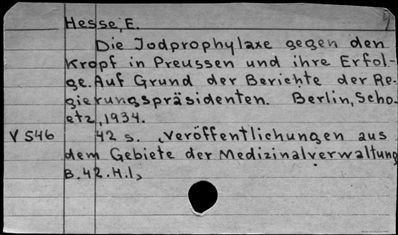 Hesse, E.
Die Jodprophylaxe gegen den
Kropf in Preussen und ihre Erfol-
ge. Auf Grund der Berichte der Re-
gierungspräsidenten. Berlin, Scho-
etz, 1934.
V 546 42 s. (Veröffentlichungen aus
dem Gebiete der Medizinalverwaltung
B. 42. H. 1)